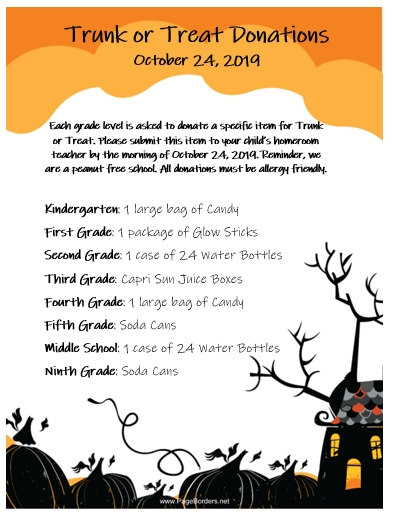 Trunk or Treat Donations
October 24, 2019
Each grade level is asked to donate a specific item for Trunk
or Treat. Please submit this item to your child's homeroom
teacher by the morning of October 24, 2019. Reminder, we
are a peanut free school. All donations must be allergy friendly.
Kindergarten: 1 large bag of Candy
First Grade: 1 package of Glow Sticks
Second Grade: 1 case of 24 Water Bottles
Third Grade: Capri Sun Juice Boxes
Fourth Grade: 1 large bag of Candy
Fifth Grade: Soda Cans
Middle School: 1 case of 24 Water Bottles
Ninth Grade: Soda Cans
www.PageBorders.net